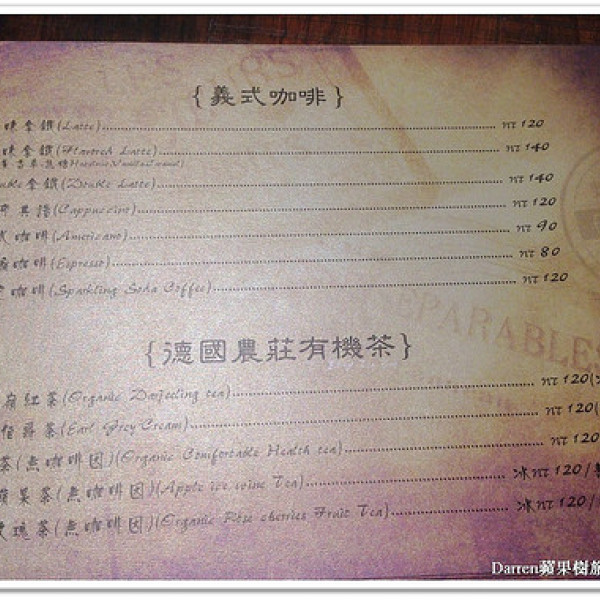 {義式咖啡}
拿鐵(Latte) NT 120
拿鐵(Flavored Latte) NT 140
拿鐵(Double Latte) NT 140
其諾(Cappuccino) NT 120
式咖啡(Americano) NT 90
咖啡(Espresso) NT 80
咖啡(Sparkling Soda Coffee) NT 120
{德國農莊有機茶}
嶺紅茶(Organic Darjeeling tea) NT 120(
伯爵茶(Earl Grey Cream) NT 120(
茶(無咖啡因)(Organic Comfortable Health tea) NT 120
蘋果茶(無咖啡因)(Apple ice wine Tea) 冰NT 120/
玫瑰茶(無咖啡因)(Organic Rose cherries Fruit Tea) 冰NT 120/
PARABLES
Darren蘋果樹旅